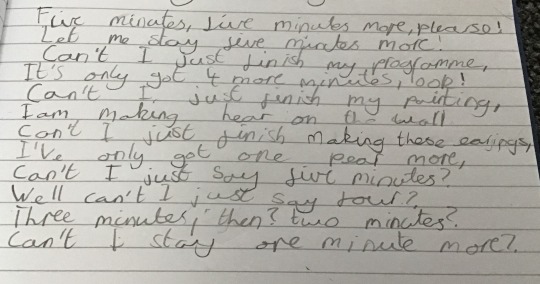 Five minutes, five minutes more, please!
Let me stay five minutes more!
Can't I just finish my programme,
It's only got 4 more minutes, oop!
Can't I just finish my painting,
I am making hear on the wall
Can't I just finish making these earings,
I've only got one pearl more,
Can't I just say five minutes?
Well can't I just say four?
Three minutes, then? two minutes?
Can't I stay one minute more?